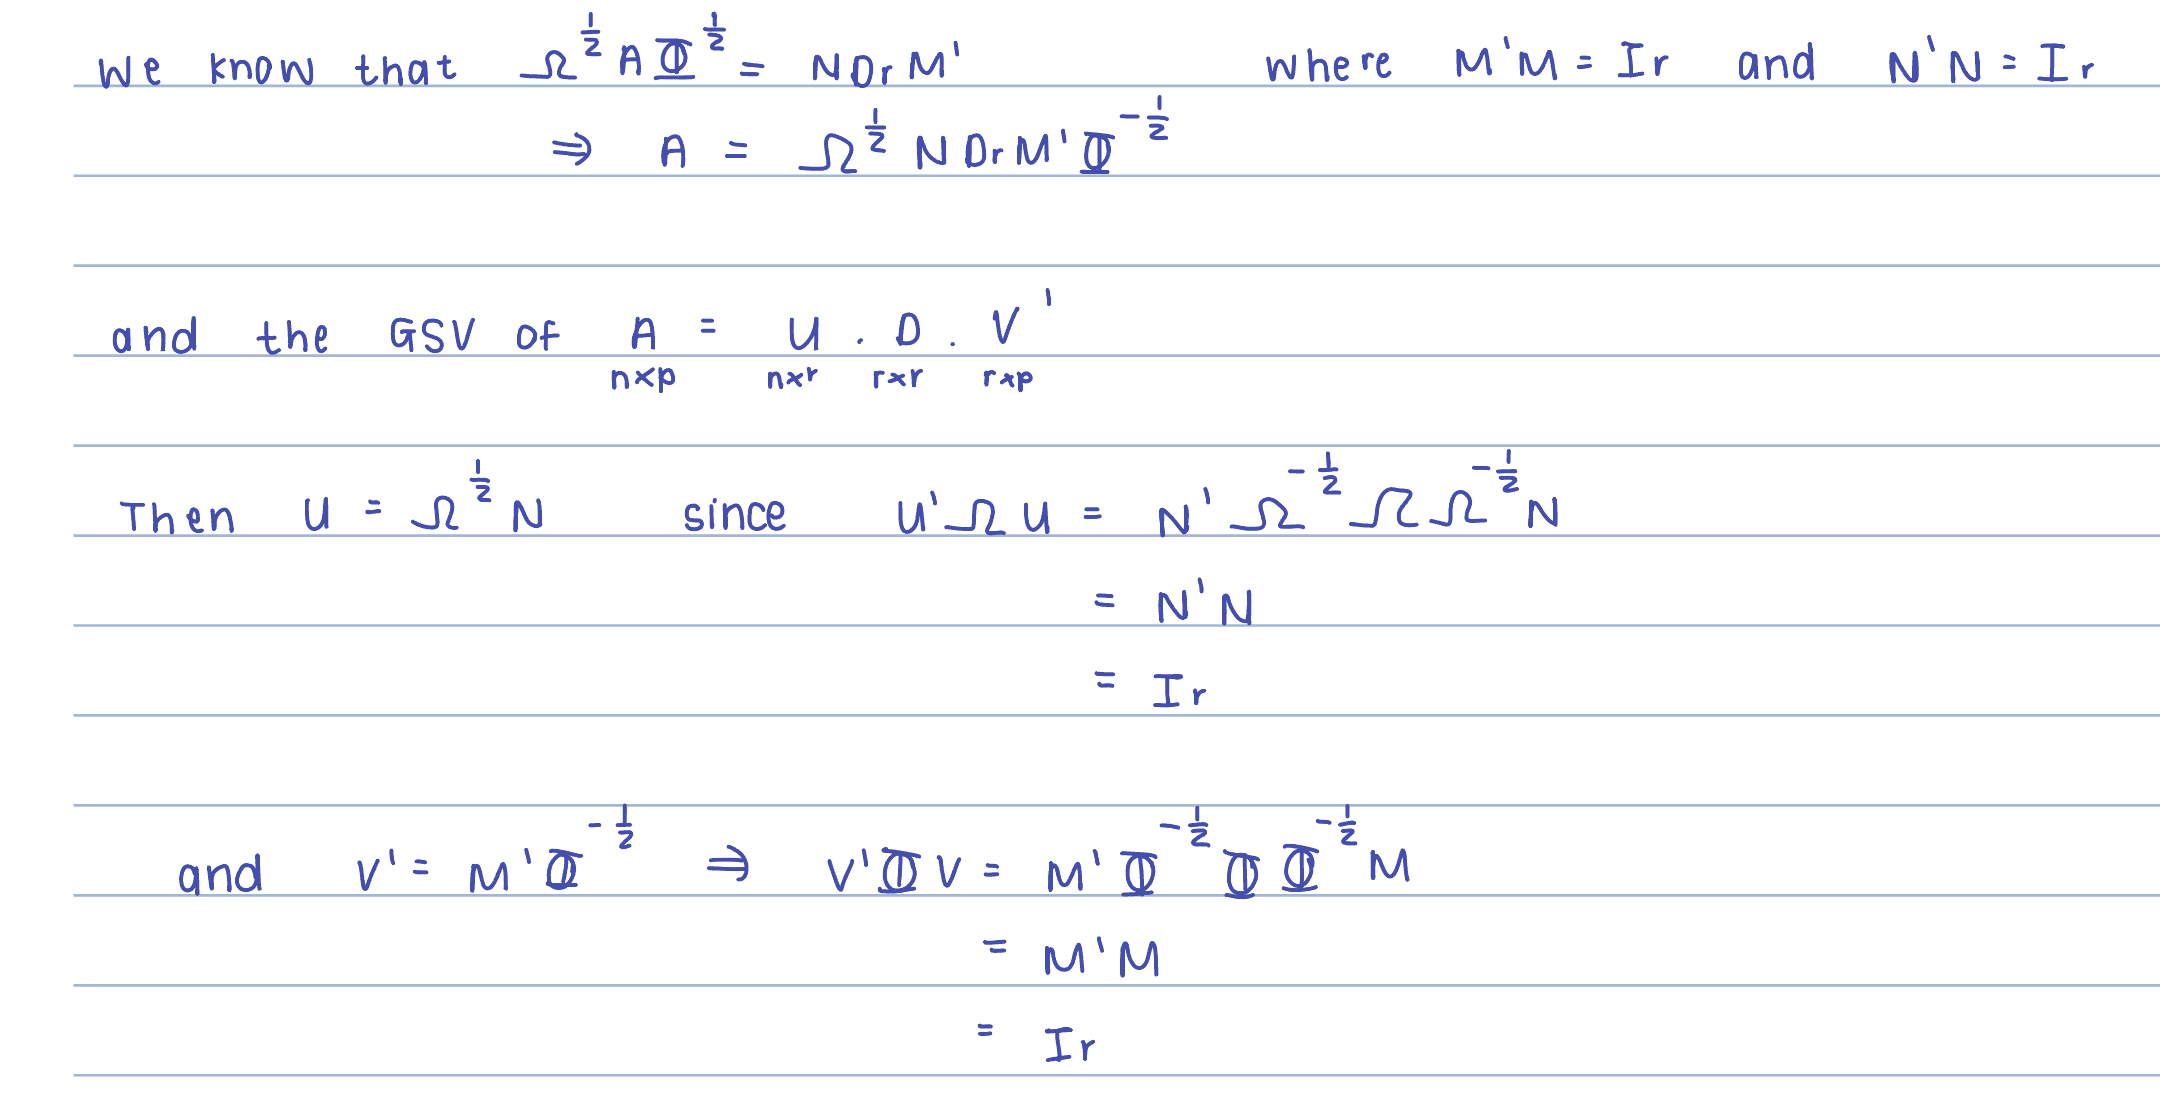 We know that Ω^{1/2} A Φ^{1/2} = N Dr M' where M'M = Ir and N'N = Ir
⇒ A = Ω^{1/2} N Dr M' Φ^{-1/2}
and the GSV of A = U . D . V'
n×p n×r r×r r×p
Then U = Ω^{1/2} N since U'ΩU = N' Ω^{-1/2} Ω Ω^{-1/2} N
= N'N
= Ir
and V' = M'Φ^{-1/2} ⇒ V'ΦV = M'Φ^{-1/2} Φ Φ^{-1/2} M
= M'M
= Ir